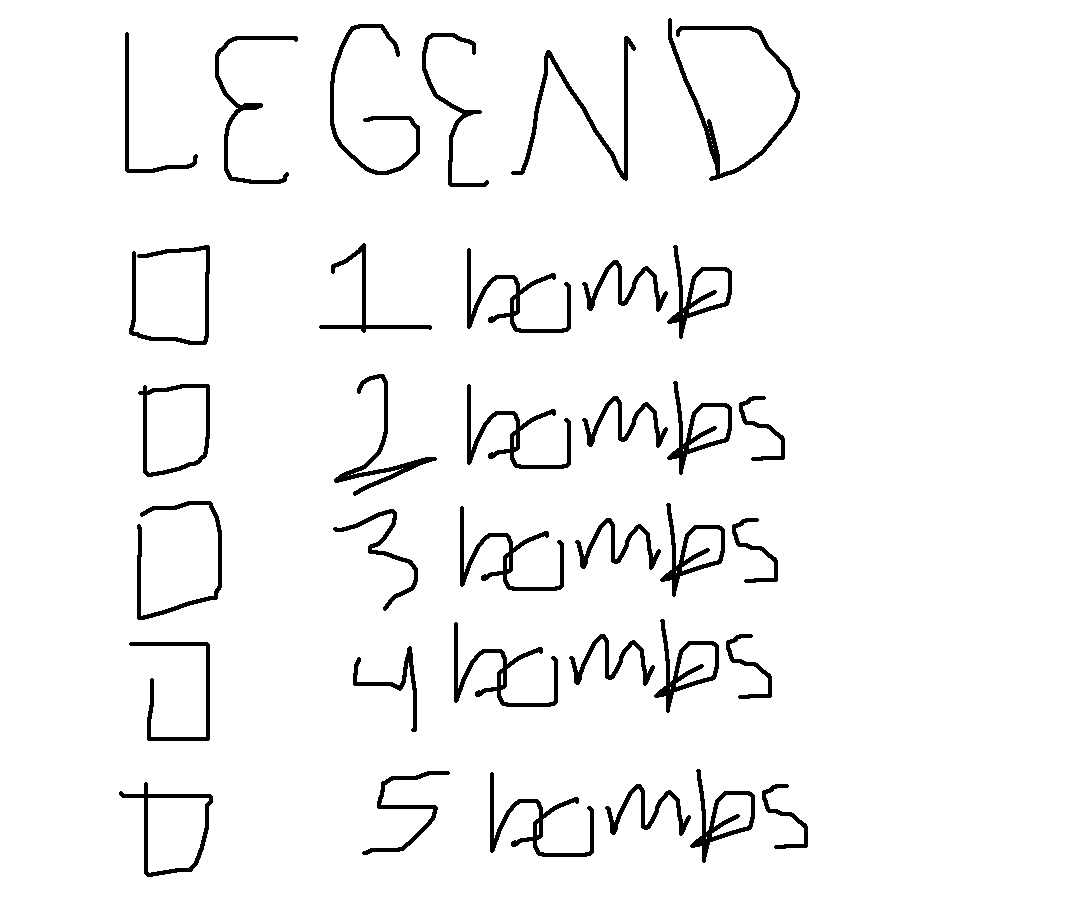 LEGEND
1 bomb
2 bombs
3 bombs
4 bombs
5 bombs